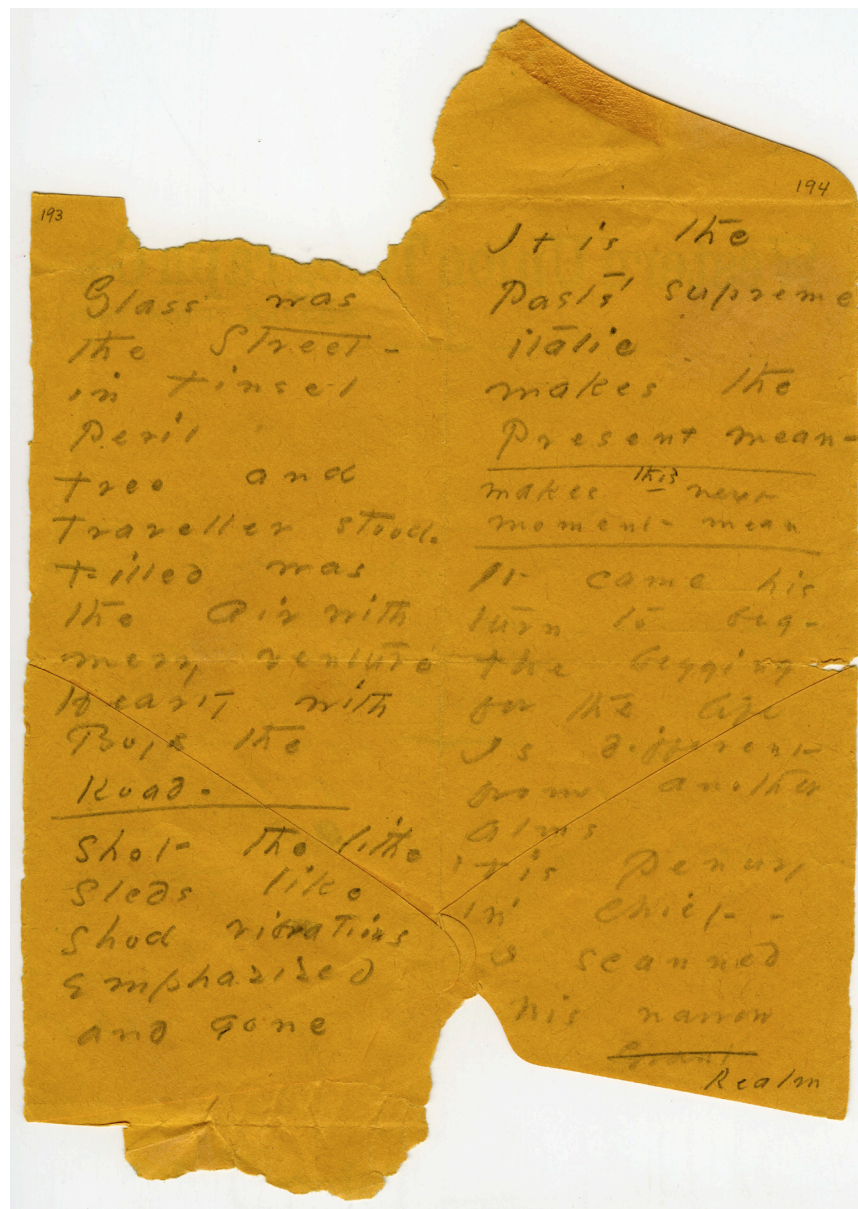 193
Glass was
the Street -
in tinsel
Peril
tree and
traveller stood.
filled was
the Air with
merry venture
Hearty with
Boys the
Road.
Shot the lithe
Sleds like
Shod vibrations
Emphasized
and gone
194
It is the
Past's supreme
italic
makes the
Present mean -
makes this next
moment mean
It came his
turn to beg -
the begging
for the life
Is different
from another
Alms
'tis Penury
in Chief -
scanned
his narrow
Grant
Realm